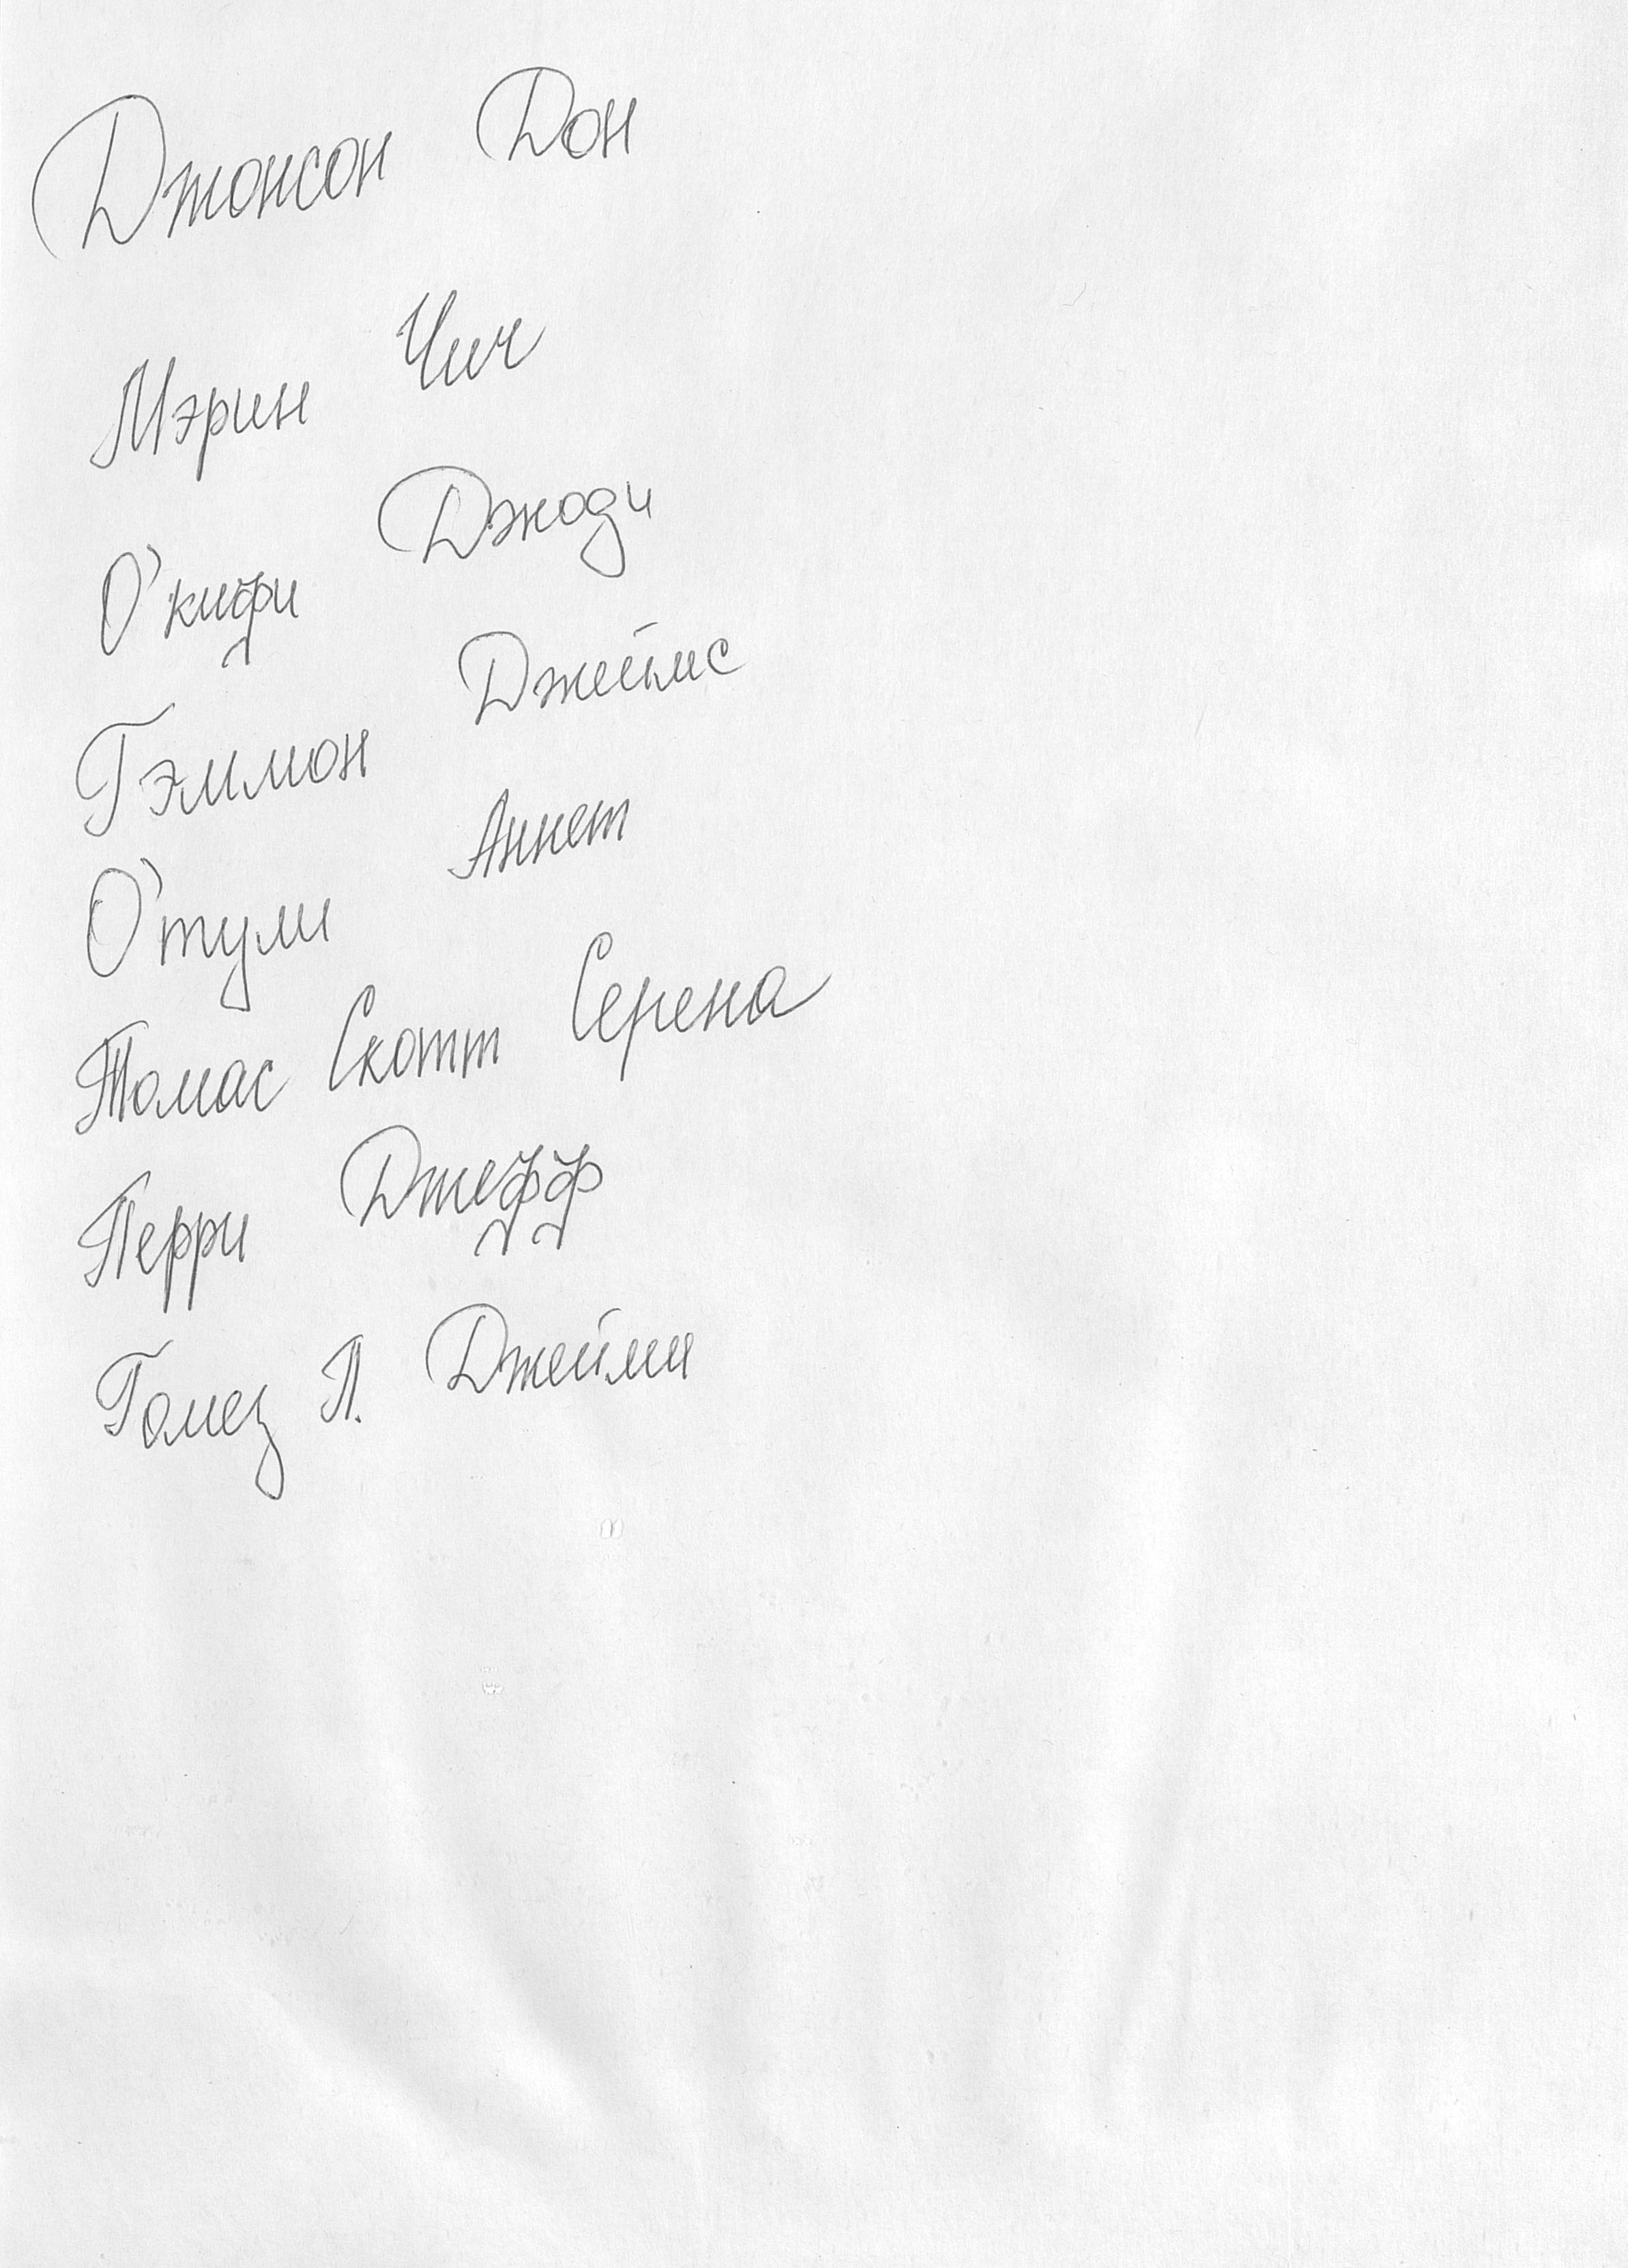 Джонсон Дон
Мэрин Чич
О'кифи Джоди
Гэммон Джеймс
О'тули Аннет
Томас Скотт Серена
Перри Джефф
Гомез П. Джейми